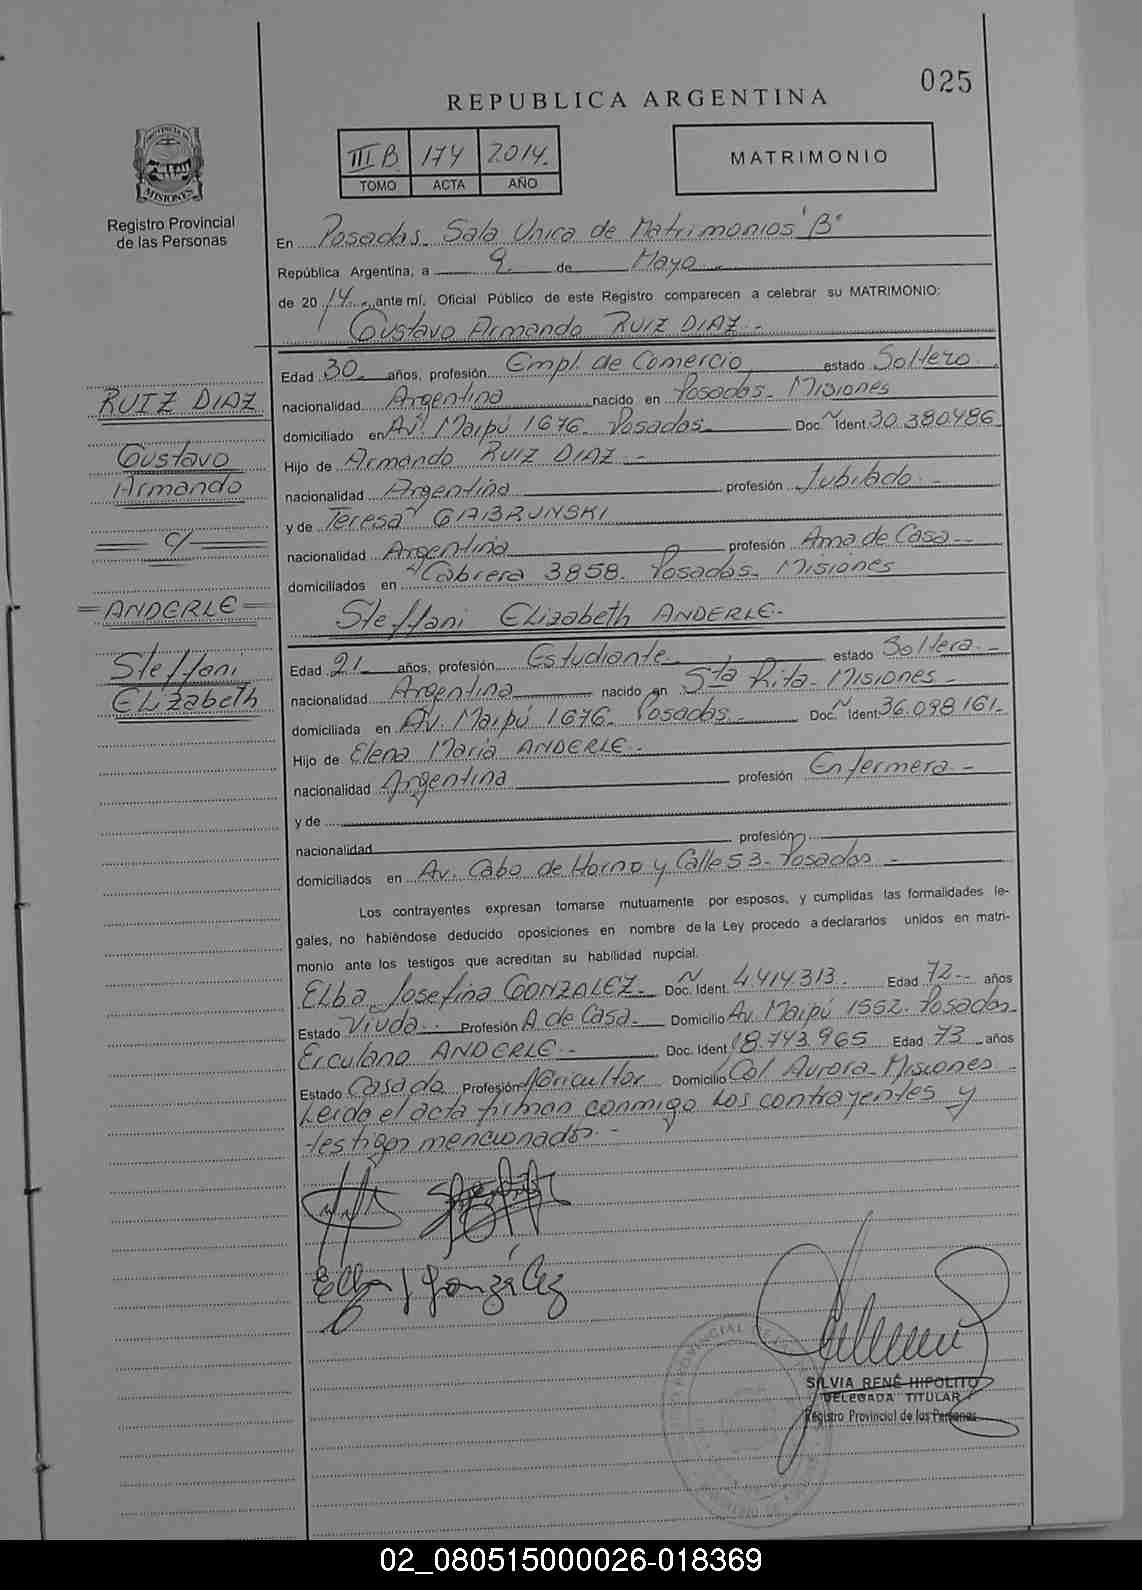 025
REPUBLICA ARGENTINA
III B 174 2014.
TOMO ACTA AÑO
MATRIMONIO
PROVINCIA DE
MISIONES
Registro Provincial
de las Personas
En Posadas Sala Unica de Matrimonios "B"
República Argentina, a 9 de Mayo
de 2014 ante mí, Oficial Público de este Registro comparecen a celebrar su MATRIMONIO:
Gustavo Armando RUIZ DIAZ.-
Edad 30 años, profesión Empl. de Comercio estado Soltero
nacionalidad Argentina nacido en Posadas - Misiones
domiciliado en Av. Maipú 1676. Posadas Doc. Ident 30.380.486
Hijo de Armando RUIZ DIAZ.-
nacionalidad Argentina profesión Jubilado.-
y de Teresa GABRUNSKI
nacionalidad Argentina profesión Ama de Casa.-
domiciliados en Cabrera 3858. Posadas - Misiones
Steffani Elizabeth ANDERLE.-
Edad 21 años, profesión Estudiante estado Soltera.-
nacionalidad Argentina nacido en Sta Rita - Misiones.-
domiciliada en Av. Maipú 1676. Posadas.- Doc. Ident 36.098.161.-
Hijo de Elena María ANDERLE.-
nacionalidad Argentina profesión Enfermera.-
y de
nacionalidad profesión
domiciliados en Av. Cabo de Horno y Calle 53 - Posadas.-
Los contrayentes expresan tomarse mutuamente por esposos, y cumplidas las formalidades le-
gales, no habiéndose deducido oposiciones en nombre de la Ley procedo a declararlos unidos en matri-
monio ante los testigos que acreditan su habilidad nupcial.
Elba Josefina GONZALEZ.- Doc. Ident. 4.414.313. Edad 72 años
Estado Viuda.- Profesión A. de Casa.- Domicilio Av. Maipú 1552. Posadas.-
Erculano ANDERLE.- Doc. Ident 8.743.965 Edad 73 años
Estado Casado Profesión Agricultor Domicilio Col. Aurora - Misiones.-
Leída el acta firman conmigo los contrayentes y
testigos mencionados.-
Elba J González
SILVIA RENÉ HIPOLITO
DELEGADA TITULAR
Registro Provincial de las Personas
RUIZ DIAZ
Gustavo
Armando
c/
ANDERLE
Steffani
Elizabeth
02_080515000026-018369